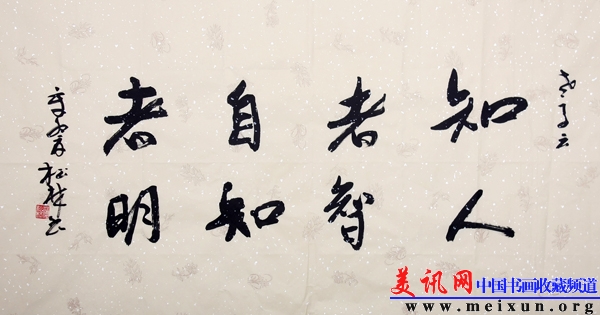 老子云
知人
者智
自知
者明
松林书
美讯网 中国书画收藏频道
www.meixun.org